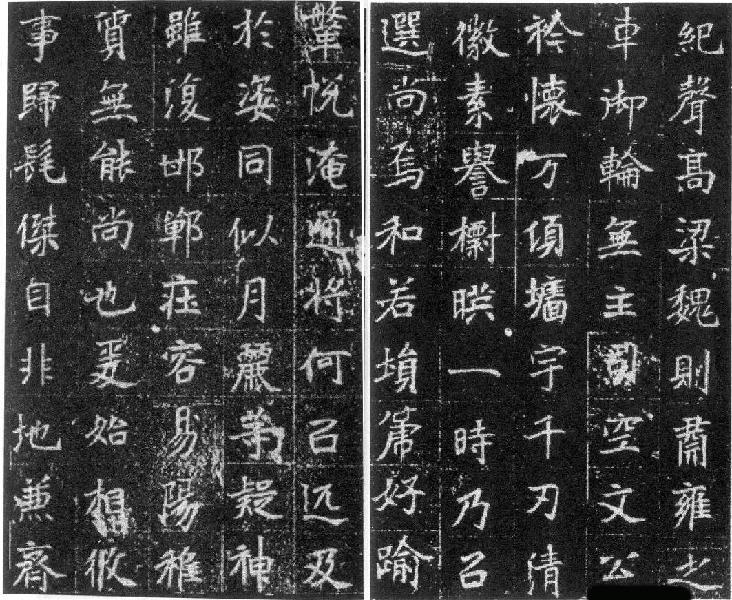 紀聲高梁魏則肅雍之
車御輪無主司空文公
衿懷万傾墻宇千刃清
徽素譽欝映一時乃召
選尚焉和若埙箎好踰
鞶帨淹通將何召远及
於姿同似月麗茅疑神
雖復邯鄲莊容易陽稚
質無能尚也爰始想攸
事歸髦傑自非地兼齊